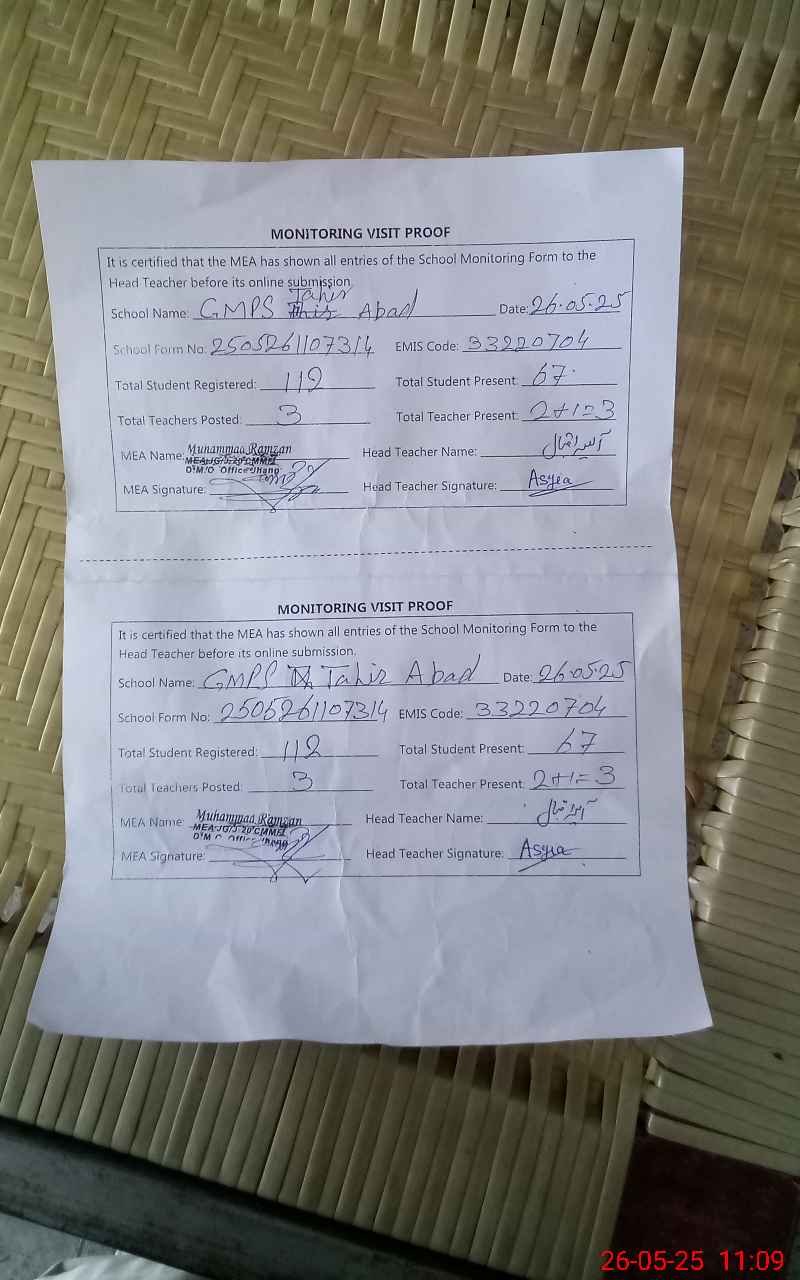 MONITORING VISIT PROOF
It is certified that the MEA has shown all entries of the School Monitoring Form to the
Head Teacher before its online submission
School Name: GMPS Tahir Abad Date: 26.05.25
School Form No: 2505261107314 EMIS Code: 33220704
Total Student Registered: 112 Total Student Present: 67
Total Teachers Posted: 3 Total Teacher Present: 2+1=3
MEA Name: Muhammad Ramzan Head Teacher Name: آسیہ اقبال
D.M.O Office Jhang
MEA Signature: Head Teacher Signature: Asyea
MONITORING VISIT PROOF
It is certified that the MEA has shown all entries of the School Monitoring Form to the
Head Teacher before its online submission.
School Name: GMPS Tahir Abad Date: 26.05.25
School Form No: 2505261107314 EMIS Code: 33220704
Total Student Registered: 112 Total Student Present: 67
Total Teachers Posted: 3 Total Teacher Present: 2+1=3
MEA Name: Muhammad Ramzan Head Teacher Name: آسیہ اقبال
D.M.O Office Jhang
MEA Signature: Head Teacher Signature: Asyea
26-05-25 11:09